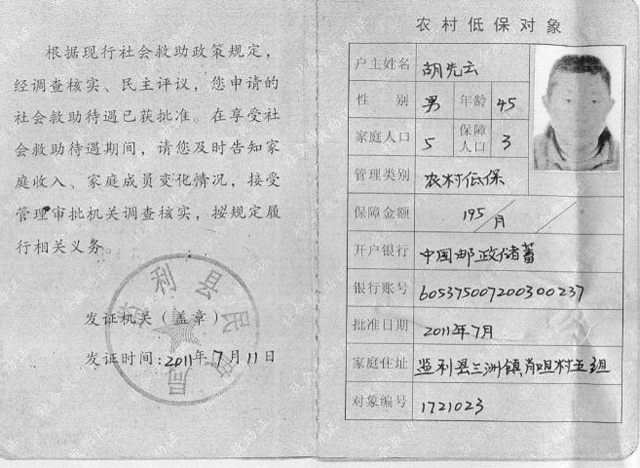 根据现行社会救助政策规定，
经调查核实、民主评议，您申请的
社会救助待遇已获批准。在享受社
会救助待遇期间，请您及时告知家
庭收入、家庭成员变化情况，接受
管理审批机关调查核实，按规定履
行相关义务。
利县民
局
发证机关（盖章）
发证时间：2011年7月11日
农村低保对象
户主姓名 胡先云
性别 男 年龄 45
家庭人口 5 保障人口 3
管理类别 农村低保
保障金额 195/月
开户银行 中国邮政储蓄
银行账号 605375007200300237
批准日期 2011年7月
家庭住址 监利县三洲镇肖咀村五组
对象编号 1721023